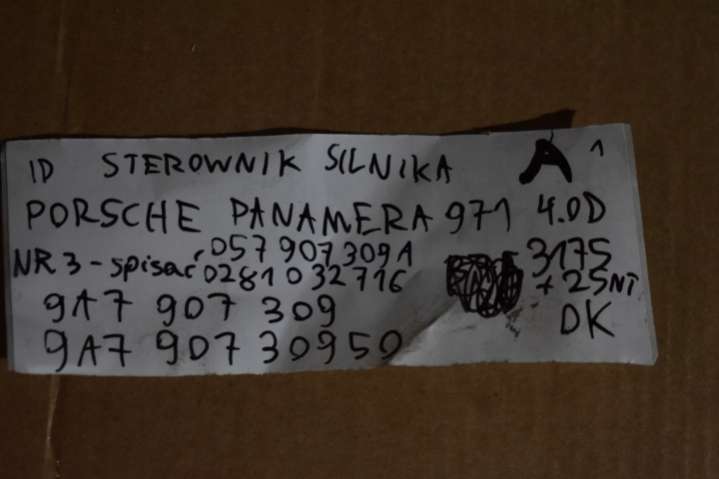 ID STEROWNIK SILNIKA A 1
PORSCHE PANAMERA 971 4.0D
NR 3 - spisać 057 907 309A 3175
0281 032 716 + 25NT
9A7 907 309 DK
9A7 907 309 50